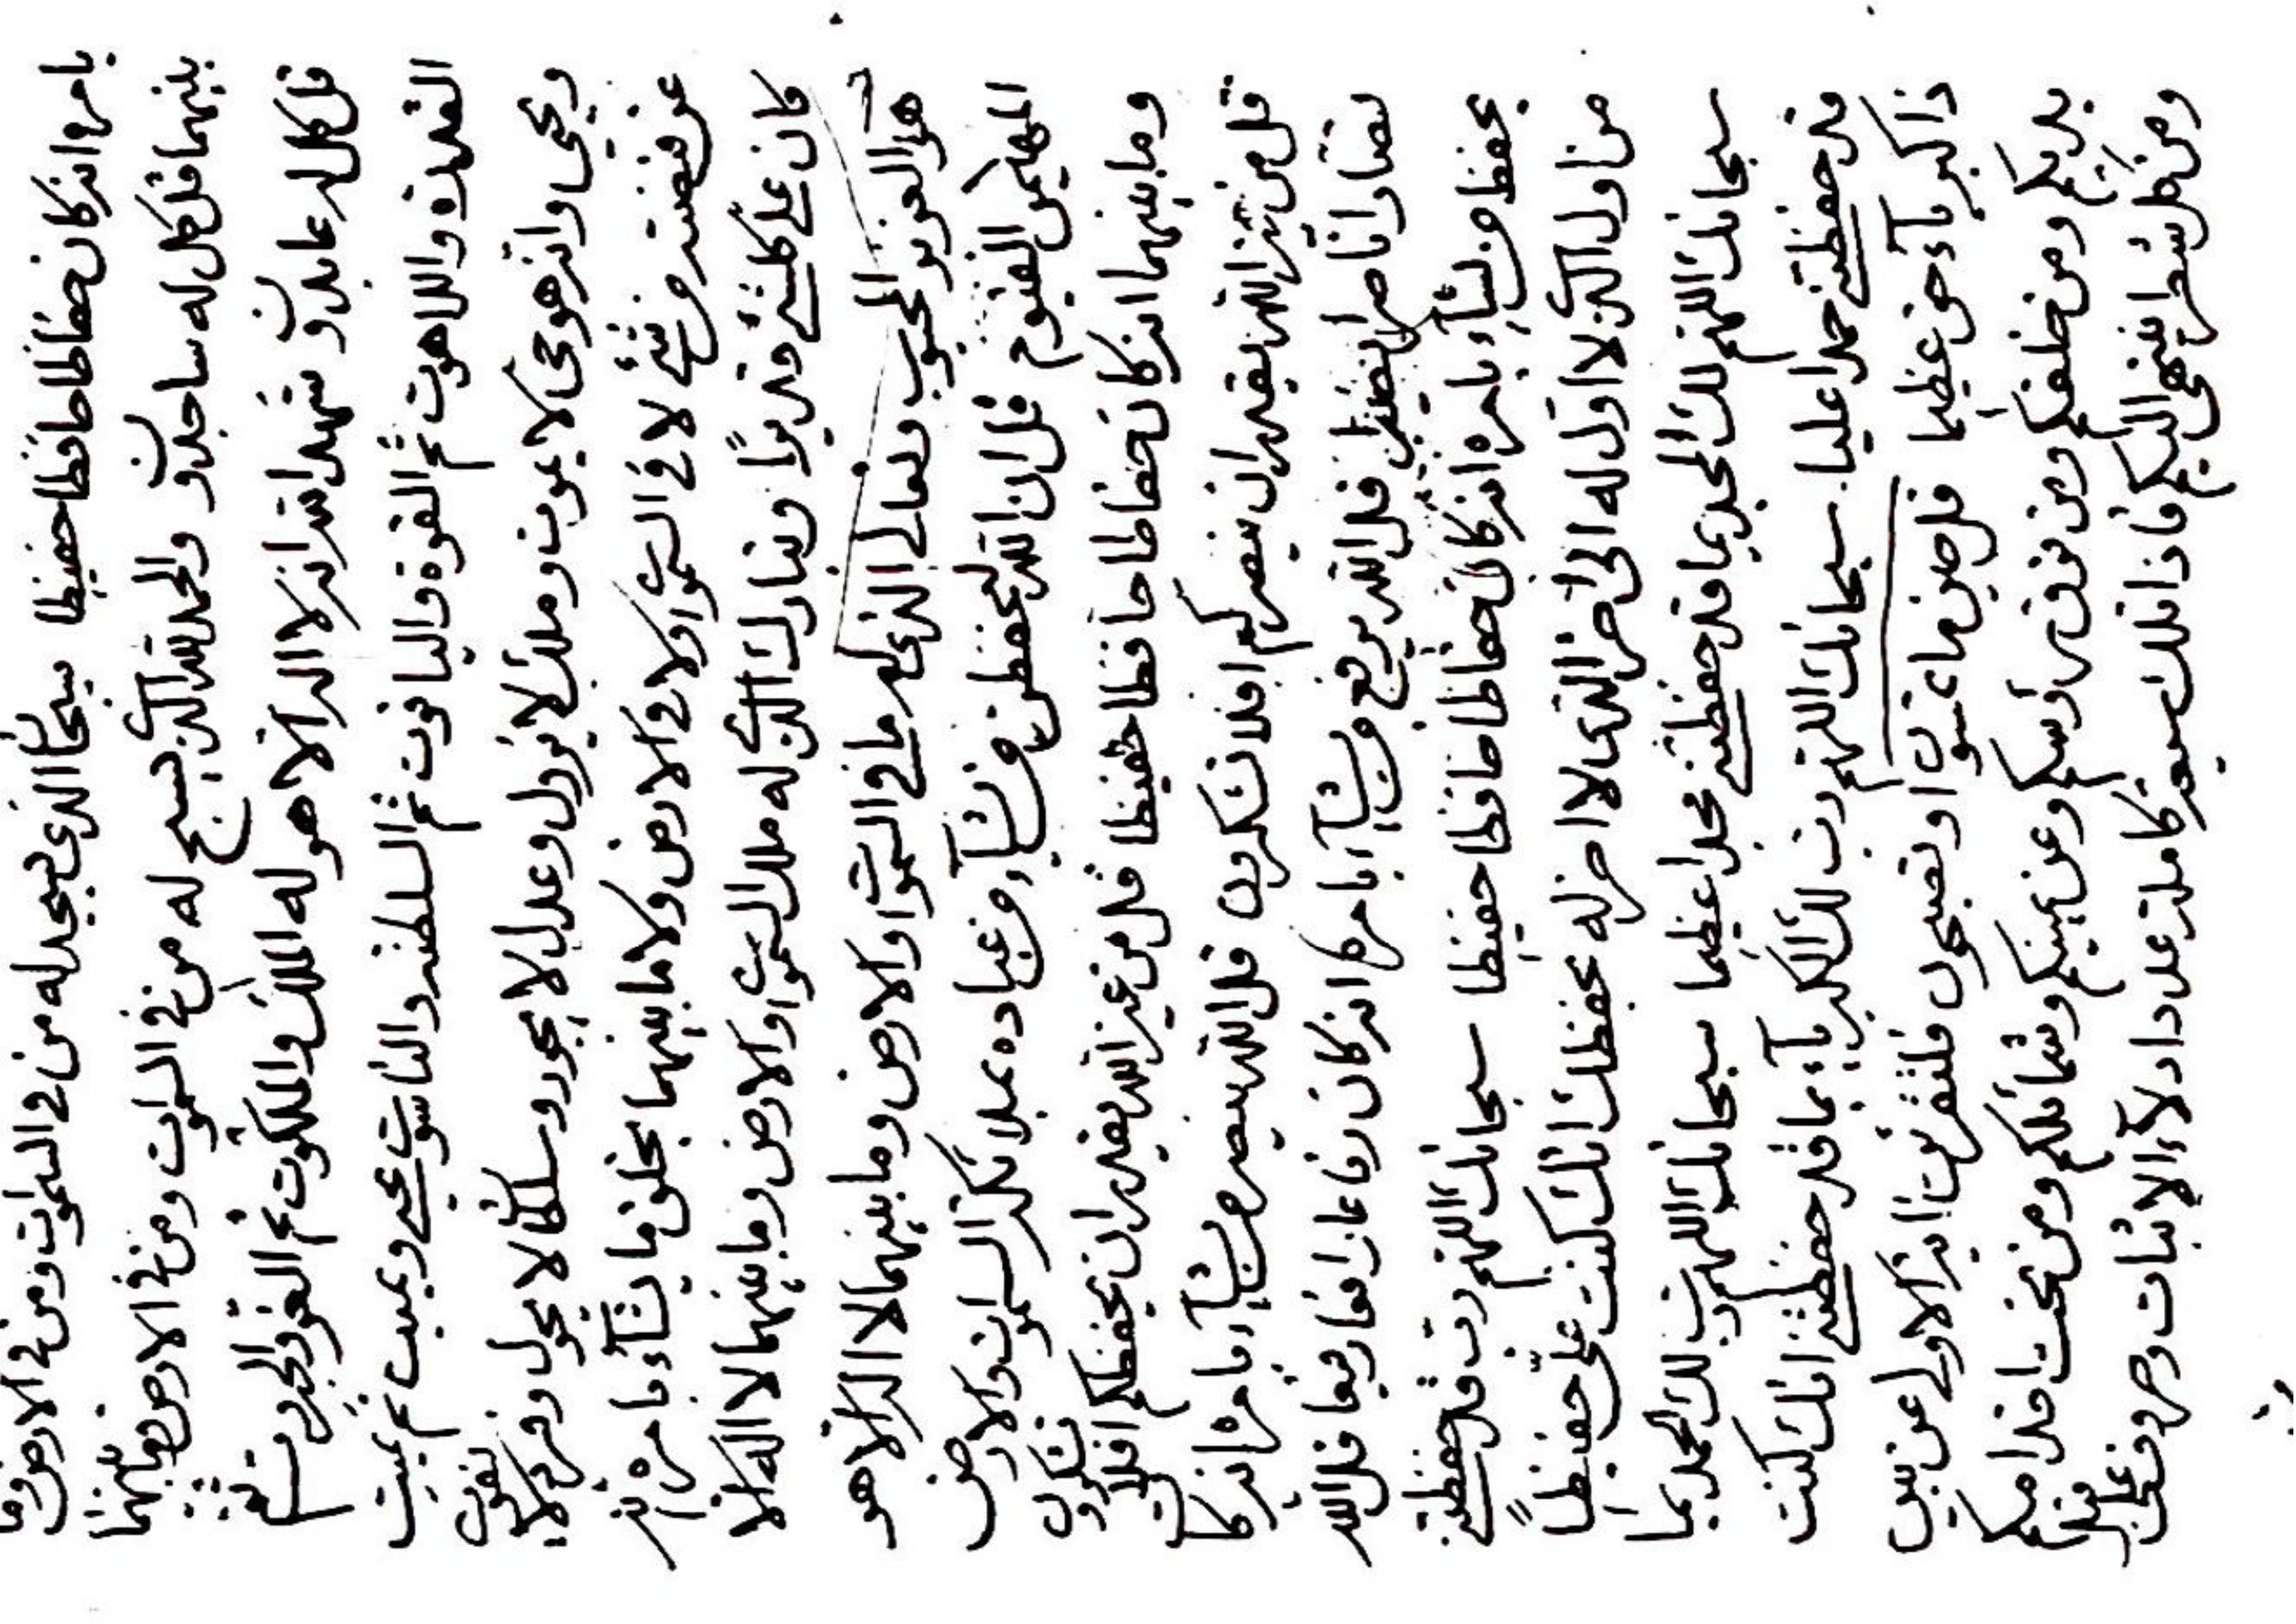 بامره انه كان حفاظا حافظا حفيظا سبحان الذي يسجد له من في السموات ومن في الارض وما
بينهما قل كل له ساجدون والحمد لله الذي يسبح له من في السموات ومن في الارض وما بينهما
قل كل له عابدون شهد الله انه لا اله الا هو له الملك والملكوت ثم العز والجبروت ثم
القدرة واللاهوت ثم القوة والياقوت ثم السلطنة والناسوت يحيي ويميت ثم يميت
ويحيي وانه هو حي لا يموت وملك لا يزول وعدل لا يجور وسلطان لا يحول وفرد لا يفوت
عن قبضته من شيء لا في السموات ولا في الارض ولا ما بينهما يخلق ما يشآء بامره انه
كان على كلشيء قديرا وتبارك الذي له ملك السموات والارض وما بينهما لا اله الا
هو العزيز المحبوب وتعالى الذي له ما في السموات والارض وما بينهما لا اله الا هو
المهيمن القيوم قل ان الله ليحفظن من يشآء من عباده بملائكة السموات والارض
وما بينهما انه كان حفاظا حافظا حفيظا قل من غير الله يقدر ان يحفظكم افلا تشكرون
قل من غير الله يقدر ان ينصركم افلا تشكرون قل الله ينصر من يشآء بامره انه كان
نصارا ناصرا نصيرا قل الله يرفع من يشآء بامره انه كان رفاعا رافعا رفيعا قل الله
يحفظ من يشآء بامره انه كان حفاظا حافظا حفيظا سبحانك اللهم رب قد حفظتني
من اول الذي لا اول له الى اخر الذي لا اخر له بحفظك انك كنت علي حفيظا
سبحانك اللهم لك الحمد بما قد حفظتني مجدا عظيما سبحانك اللهم رب لك الحمد بما
قد حفظتني حمدا عليا سبحانك اللهم رب لك الكبريآء بما قد حفظتني انك كنت
ذا كبريآء حق عظيما قل حين ما تمسون او تصبحون فلتقرئون اية الاولى عن بين
يديكم ومن خلفكم ومن فوق رؤسكم وعن يمينكم وشمائلكم ومن تحت اقدامكم
ومن كل شطر ينتهي اليكم فاذا تلك سبعة كاملة عدد لآء الاثبات وحروف